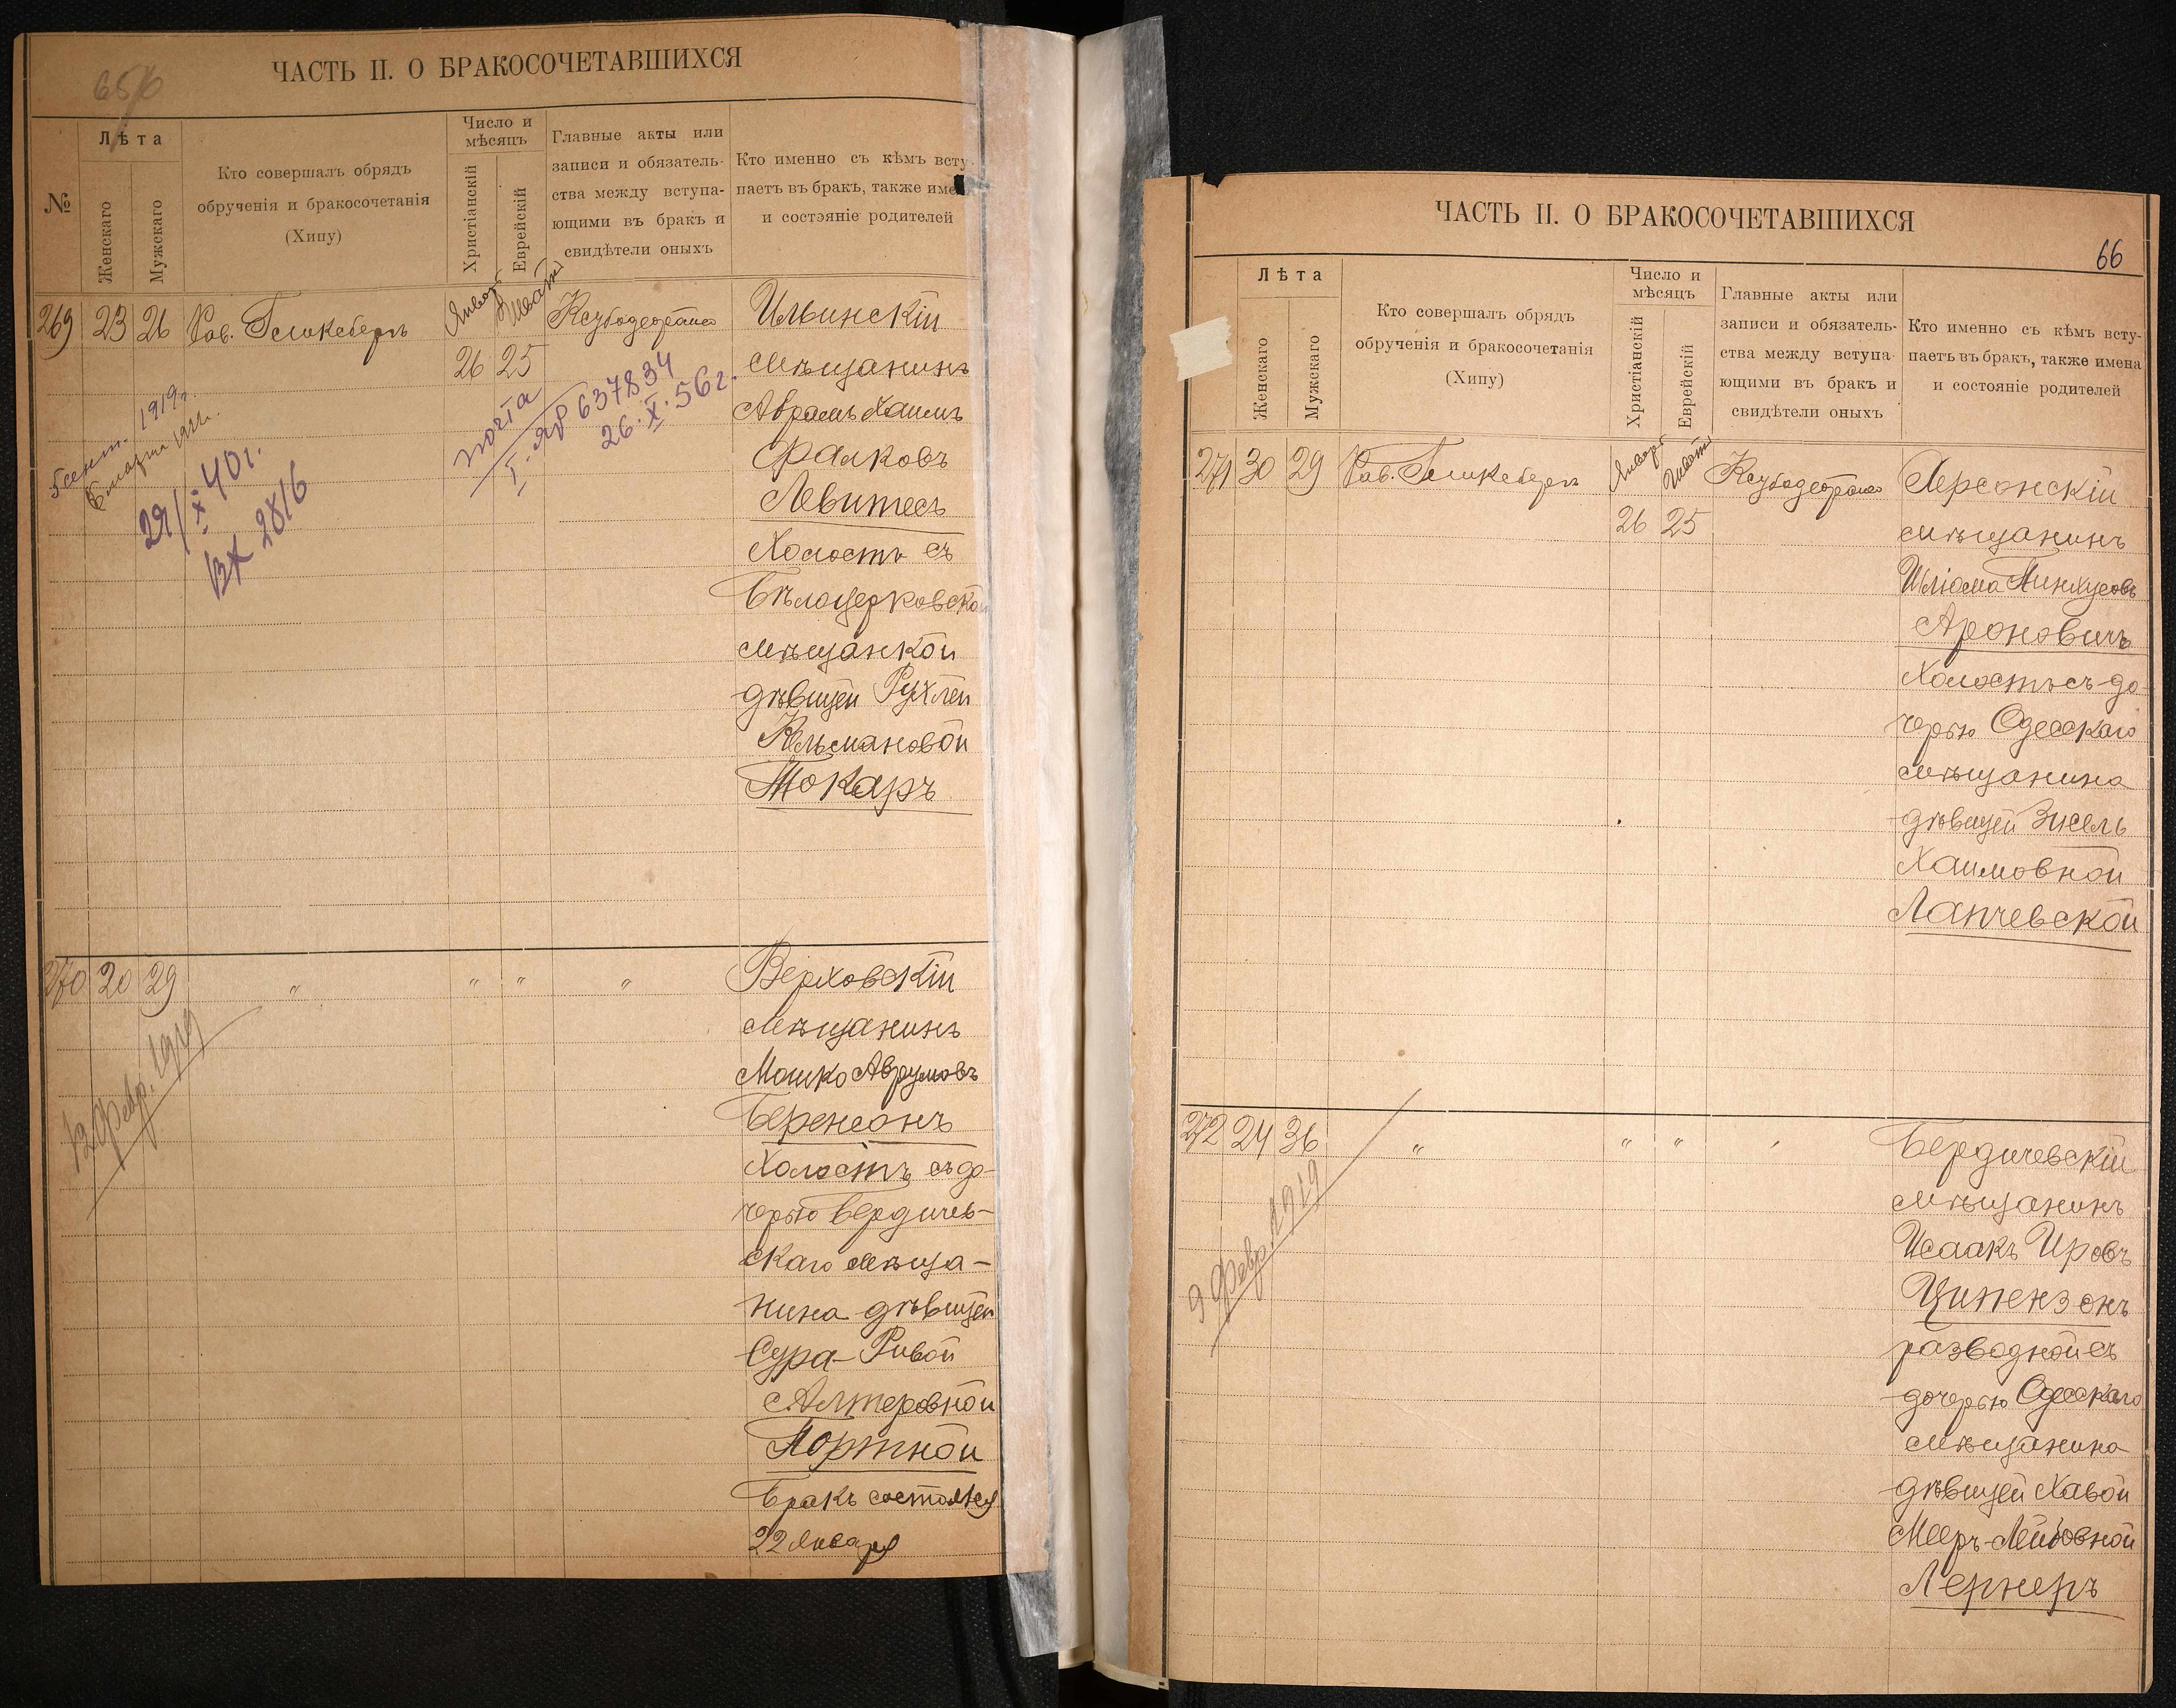 656
ЧАСТЬ II. О БРАКОСОЧЕТАВШИХСЯ
№
Лѣта
Женскаго
Мужскаго
Кто совершалъ обрядъ
обрученія и бракосочетанія
(Хипу)
Число и
мѣсяцъ
Христіанскій
Еврейскій
Главные акты или
записи и обязатель-
ства между вступа-
ющими въ бракъ и
свидѣтели оныхъ
Кто именно съ кѣмъ всту-
паетъ въ бракъ, также име
и состояніе родителей
269 23 26 Рав. Январ Шват
26 25
Ильинскій
мѣщанинъ
Аврамъ Хаимъ
Фалковъ
Левитесъ
Холостъ съ
Бѣлоцерковской
мѣщанкой
дѣвицей Рухлей
Кельмановой
Токаръ
5 сент. 1919г.
6 марта 1922г.
29/X 40г.
ВХ 2816
почта
I-ЯР 637834
26.X.56г.
270 20 29 " " " "
Верховскій
мѣщанинъ
Мошко Аврумовъ
Беренсонъ
Холостъ съ до-
черью Бердичев-
скаго мѣща-
нина дѣвицей
Сура-Ривой
Алтеровной
Портной
Бракъ состоялся
22 Января
12 февр. 1919
ЧАСТЬ II. О БРАКОСОЧЕТАВШИХСЯ
66
Лѣта
Женскаго
Мужскаго
Кто совершалъ обрядъ
обрученія и бракосочетанія
(Хипу)
Число и
мѣсяцъ
Христіанскій
Еврейскій
Главные акты или
записи и обязатель-
ства между вступа-
ющими въ бракъ и
свидѣтели оныхъ
Кто именно съ кѣмъ всту-
паетъ въ бракъ, также имена
и состояніе родителей
271 30 29 Рав. Январ Шват
26 25
Херсонскій
мѣщанинъ
Шліома Пинхусовъ
Ароновичъ
Холостъ съ до-
черью Одесскаго
мѣщанина
дѣвицей Зисель
Хаимовной
Лапчевской
272 24 36 " " "
Бердичевскій
мѣщанинъ
Исаакъ Ировъ
Ципензонъ
разводной съ
дочерью Одесскаго
мѣщанина
дѣвицей Хавой
Мееръ-Лейбовной
Лернеръ
9 февр. 1919